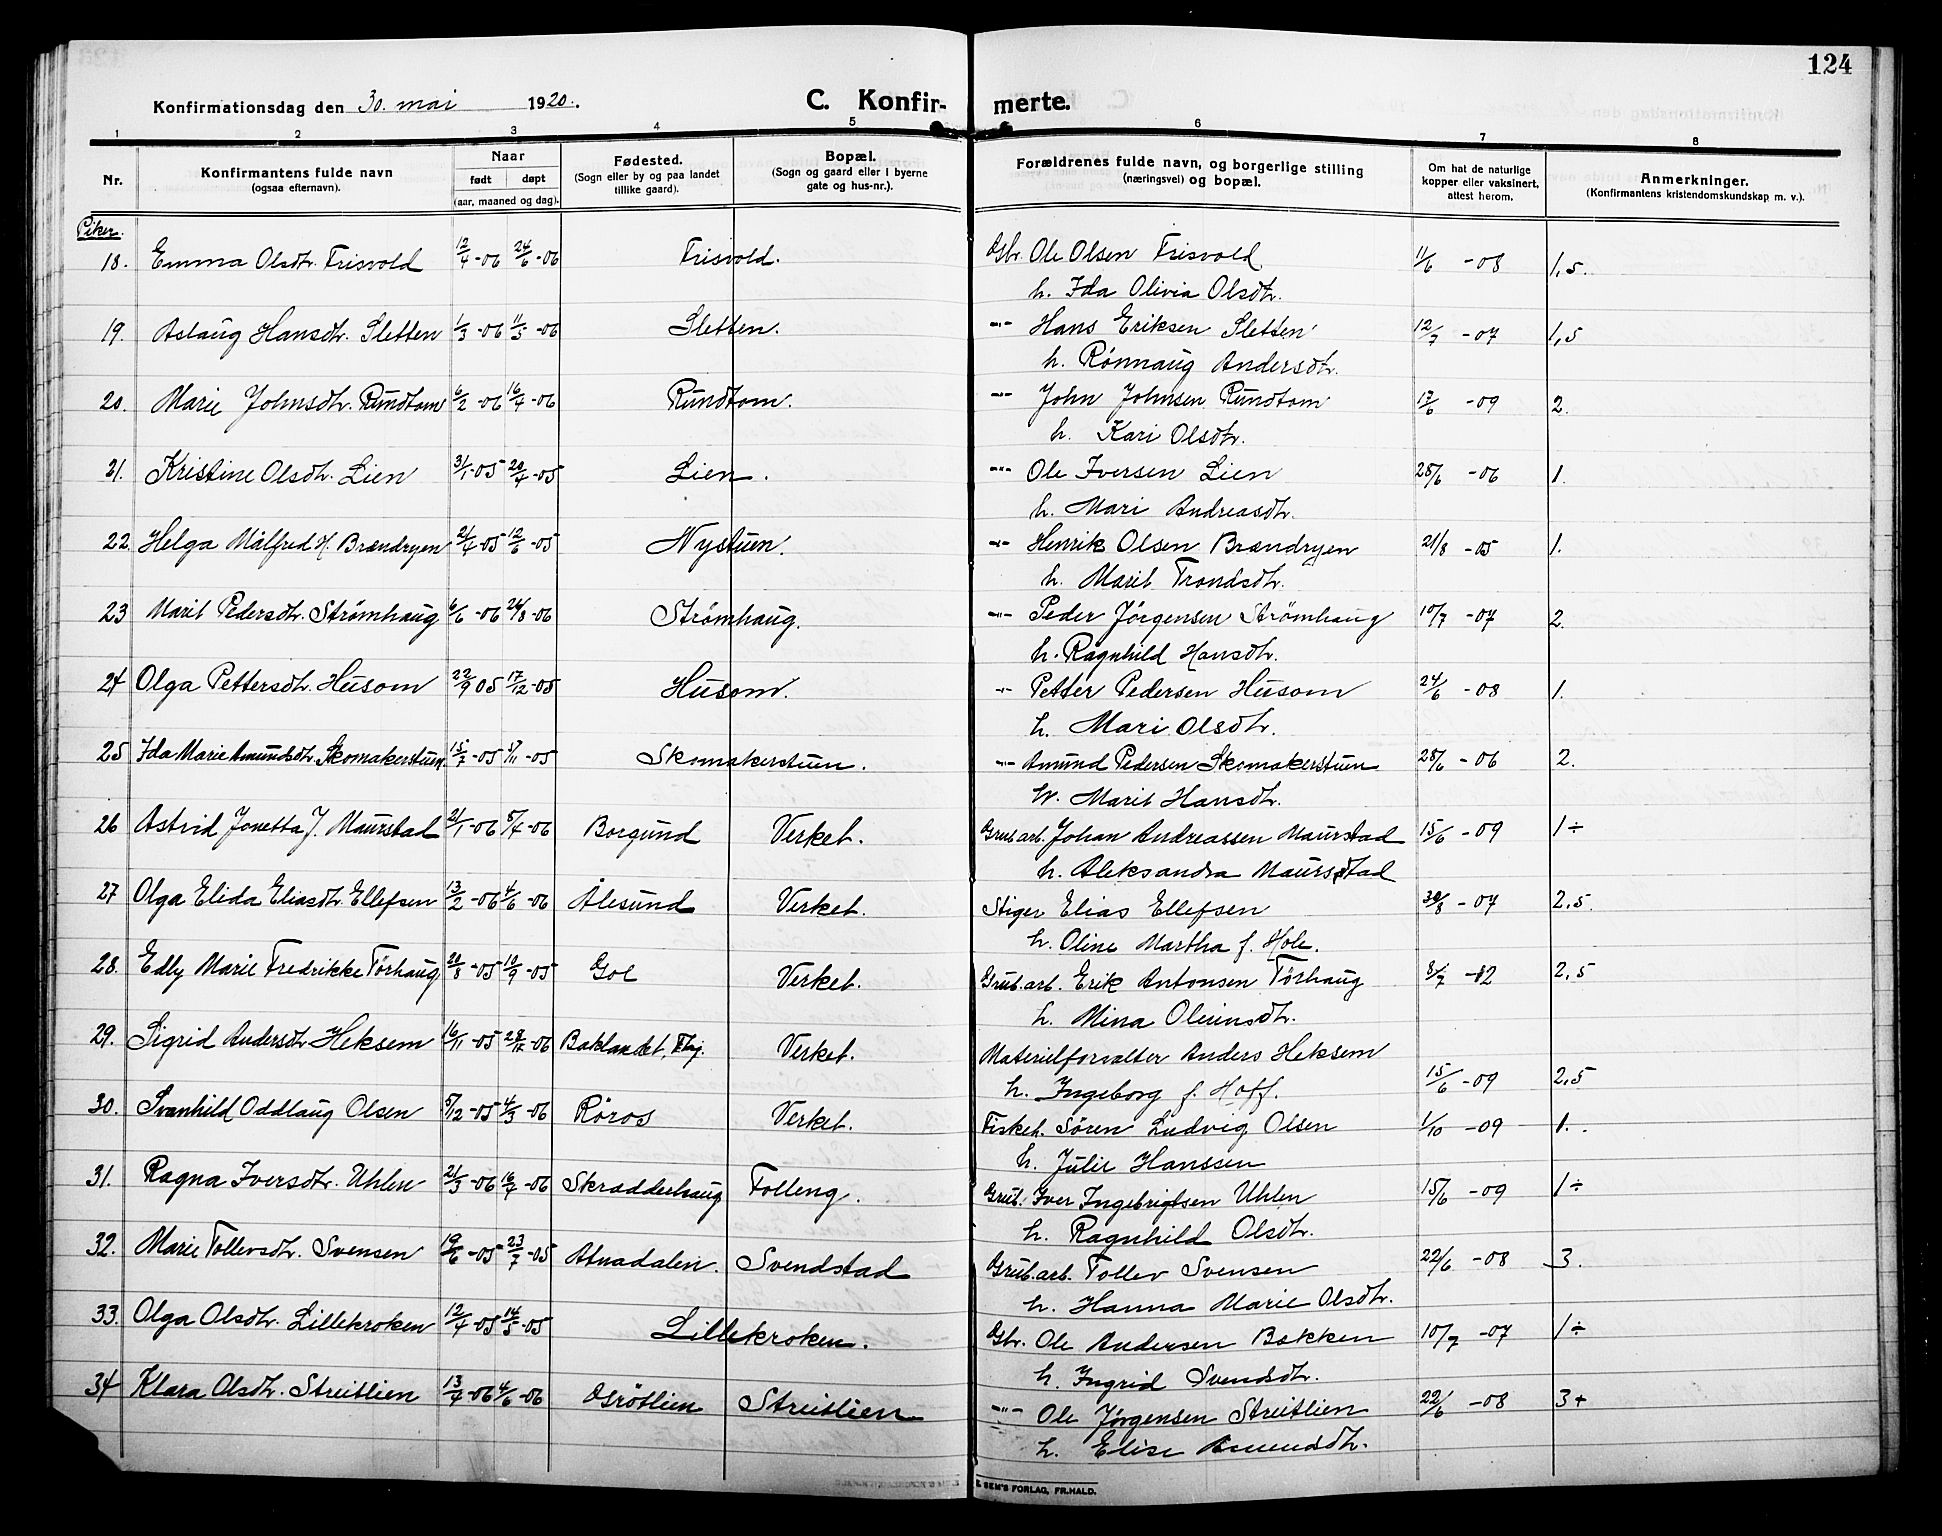 124
Konfirmationsdag den 30. mai 1920. C. Konfir- merte.
1 2 3 4 5 6 7 8
Nr. Konfirmantens fulde navn (ogsaa efternavn). Naar født døpt (aar, maaned og dag). Fødested. (Sogn eller by og paa landet tillike gaard). Bopæl. (Sogn og gaard eller i byerne gate og hus-nr.). Forældrenes fulde navn, og borgerlige stilling (næringsvei) og bopæl. Om hat de naturlige kopper eller vaksinert, attest herom. Anmerkninger. (Konfirmantens kristendomskundskap m. v.).
Piker.
18. Emma Olsdtr. Frisvold 12/4 -06 24/6 -06 Frisvold. Gbr. Ole Olsen Frisvold 11/6 -08 1,5.
h. Ida Olivia Olsdtr.
19. Aslaug Hansdtr. Sletten 1/3 -06 11/5 -06 Sletten. -"- Hans Eriksen Sletten 12/7 -07 1,5
h. Rønnaug Andersdtr.
20. Marie Johnsdtr. Rundtom 6/2 -06 16/4 -06 Rundtom. -"- John Johnsen Rundtom 17/6 -09 2.
h. Kari Olsdtr.
21. Kristine Olsdtr. Lien 31/1 -05 20/4 -05 Lien. -"- Ole Iversen Lien 28/6 -06 1.
h. Mari Andreasdtr.
22. Helga Målfred H. Brændryen 21/4 -05 12/6 -05 Nystuen. -"- Henrik Olsen Brændryen 21/8 -05 1.
h. Marit Trondsdtr.
23 Marit Pedersdtr. Strømhaug 6/6 -06 26/8 -06 Strømhaug. -"- Peder Jørgensen Strømhaug 10/7 -07 2.
h. Ragnhild Hansdtr.
24 Olga Pettersdtr. Husom 22/9 05 17/12 -05 Husom. -"- Petter Pedersen Husom 24/6 -08 1.
h. Mari Olsdtr.
25 Ida Marie Amundsdtr. Skomakerstuen 15/7 -05 5/11 -05 Skomakerstuen. -"- Amund Pedersen Skomakerstuen 28/6 -06 2.
h. Marit Hansdtr.
26 Astrid Jonetta J. Maurstad 21/1 -06 5/4 -06 Borgund Verket. Grub.arb. Johan Andreassen Maurstad 15/6 -09 1÷
h. Aleksandra Maurstad
27 Olga Elida Eliasdtr. Ellefsen 13/2 -06 4/6 -06 Ålesund Verket. Stiger Elias Ellefsen 30/8 -07 2,5.
h. Oline Martha f. Hole.
28. Edly Marie Fredrikke Tørhaug 20/8 -05 10/9 -05 Gol Verket. Grub.arb. Erik Antonsen Tørhaug 8/7 -12 2,5
h. Mina Oleinsdtr.
29. Sigrid Andersdtr Heksem 16/11 -05 28/12 -06 Baklandet, Thj. Verket. Materielforvalter Anders Heksem
h. Ingeborg f. Hoff. 15/6 -09 2,5
30. Svanhild Oddlaug Olsen 5/12 -05 4/3 -06 Røros Verket. Fiskeh. Søren Ludvig Olsen 1/10 -09 1.
h. Julie Hanssen
31. Ragna Iversdtr. Uhlen 21/3 -06 16/4 -06 Skradderhaug Folleng. Grub. Iver Ingebrigtsen Uhlen 15/6 -09 1÷
h. Ragnhild Olsdtr.
32. Marie Tollevsdtr. Svensen 19/6 -05 23/7 -05 Atnadalen. Svendstad Grub.arb. Tollev Svensen 22/6 -08 3.
h. Hanna Marie Olsdtr.
33. Olga Olsdtr. Lillekroken 12/4 -05 14/5 -05 Lillekroken. Gbr. Ole Andersen Bakken 10/7 -07 1÷
h. Ingrid Svendsdtr.
34 Klara Olsdtr. Streitlien 13/4 -06 4/6 -06 Grøtlien Streitlien -"- Ole Jørgensen Streitlien 22/6 -08 3+
h. Elise Amundsdtr.
SEM'S FORLAG, FR.HALD.